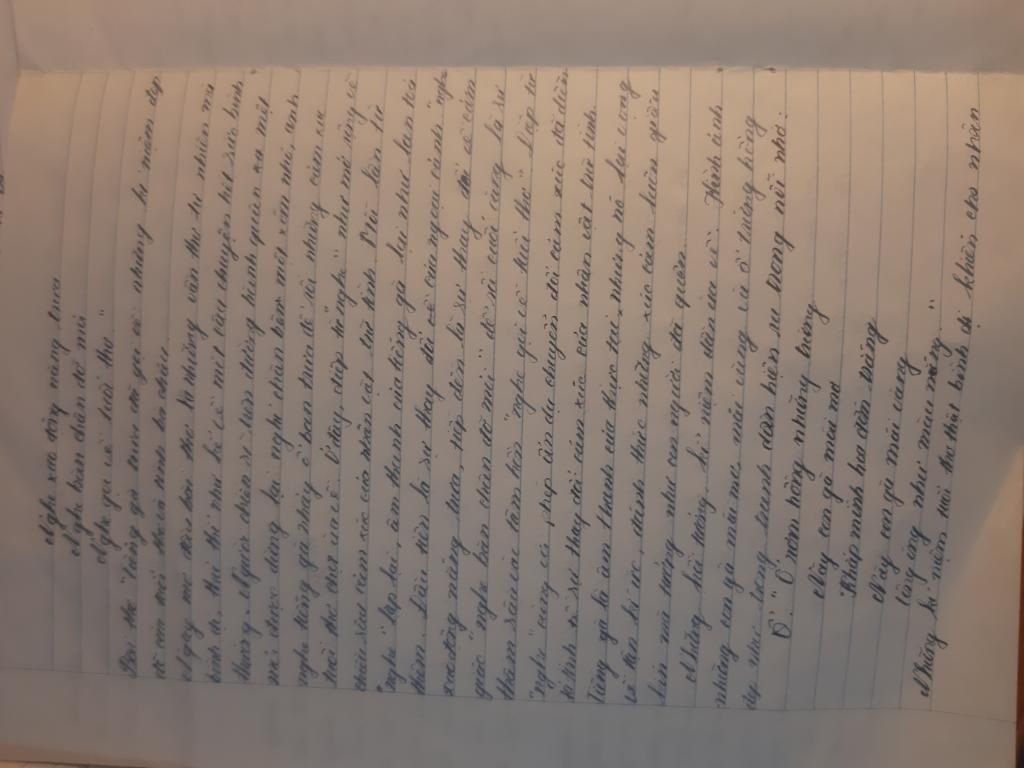 Nghe xao động nắng trưa
Nghe bàn chân đỡ mỏi
Nghe gọi về tuổi thơ"
Bài thơ "Tiếng gà trưa" đã gợi về những kỉ niệm đẹp
đẽ của tuổi thơ và tình bà cháu.
Ngay mở đầu bài thơ là những vần thơ tự nhiên mà
bình dị, thủ thỉ như kể về một câu chuyện hết sức bình
thường. Người chiến sĩ trên đường hành quân xa mệt
mỏi được dừng lại nghỉ chân bên một xóm nhỏ, anh
nghe tiếng gà nhảy ổ ban trưa đó là những cảm xúc
rất thơ mới vừa ùa về. Ở đây, điệp từ "nghe" như mở rộng về
chiều sâu cảm xúc của nhân vật trữ tình. Mỗi lần từ
"nghe" lặp lại, âm thanh của tiếng gà lại như lan tỏa
thêm. Đầu tiên là sự thay đổi về của ngoại cảnh "nghe
xao động nắng trưa", tiếp đến là sự thay đổi về cảm
giác "nghe bàn chân đỡ mỏi" để rồi cuối cùng là sự
thẳm sâu của tâm hồn "nghe gọi về tuổi thơ". Điệp từ
"nghe" cùng với phép ẩn dụ chuyển đổi cảm xúc đã diễn
tả tinh tế sự thay đổi cảm xúc của nhân vật trữ tình.
Tiếng gà là âm thanh của thực tại, nhưng nó lại vọng
về từ tâm kí ức, đánh thức những xúc cảm luôn gần
liền mà tưởng như con người đã quên.
Những hồi tưởng, kỉ niệm dần ùa về. Hình ảnh
những con gà mái mơ, mái vàng và ổ trứng hồng
đẹp như trong tranh dần hiện ra trong nỗi nhớ:
"Ổ rơm hồng những trứng
Này con gà mái mơ
Khắp mình hoa đốm trắng
Này con gà mái vàng
Lông óng như màu nắng"
Những kỉ niệm tuổi thơ thật bình dị khiến cho nhân